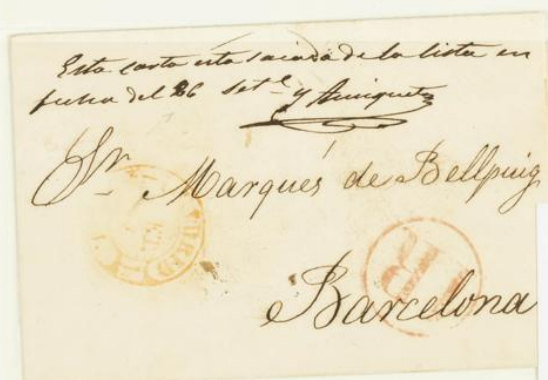 Esta carta esta sacada de la lista en
fecha del 26 Set.e y
Sr. Marqués de Bellpuig
Barcelona